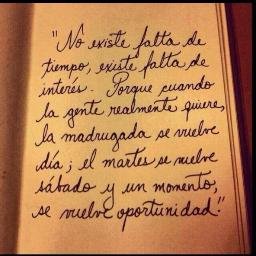 "No existe falta de
tiempo, existe falta de
interés. Porque cuando
la gente realmente quiere,
la madrugada se vuelve
día; el martes se vuelve
sábado y un momento,
se vuelve oportunidad."